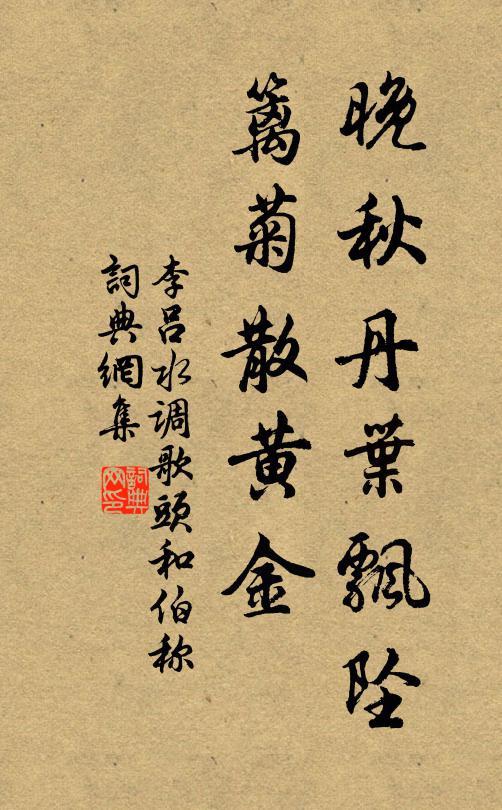 晚秋丹葉飄墜
籬菊散黄金
李呂水调歌頭和伯称
詞典網集
詞典网印